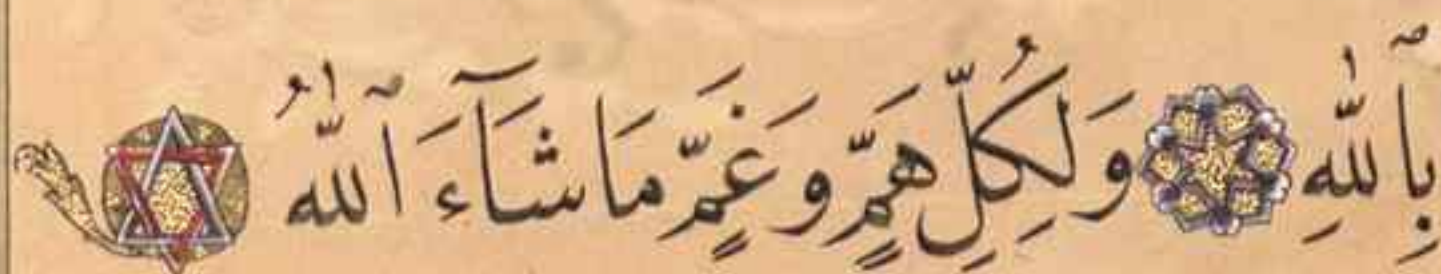 بِٱللّٰهِ وَلِكُلِّ هَمٍّ وَغَمٍّ مَا شَآءَ ٱللّٰهُ